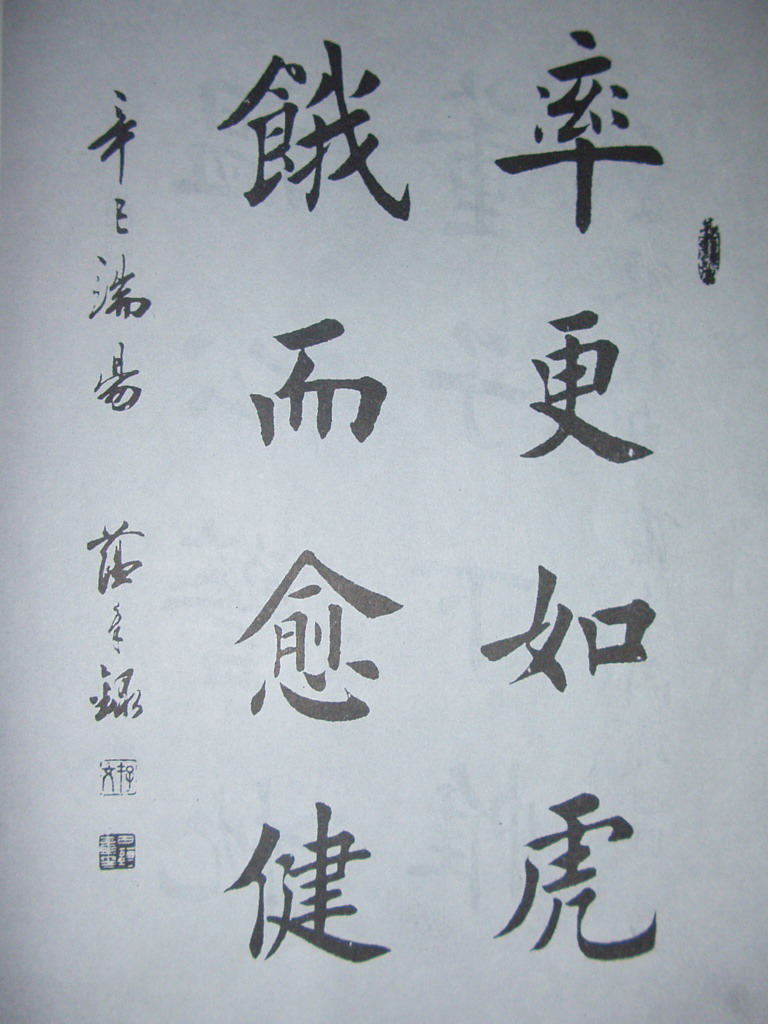 率更如虎
餓而愈健
辛巳端易